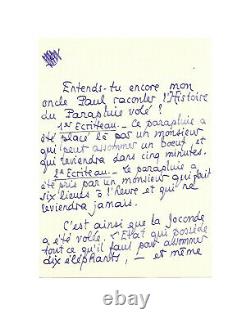 Entends-tu encore mon
oncle Paul raconter l'Histoire
du Parapluie volé ?
1er Ecriteau._ Ce parapluie a
été placé là par un monsieur
qui peut assommer un boeuf et
qui reviendra dans cinq minutes.
2e Ecriteau._ Ce parapluie a
été pris par un monsieur qui fait
six lieues à l'heure et qui ne
reviendra jamais.
C'est ainsi que la Joconde
a été volée. L'Etat qui possède
tout ce qu'il faut pour assommer
dix éléphants, _ et même
ebay